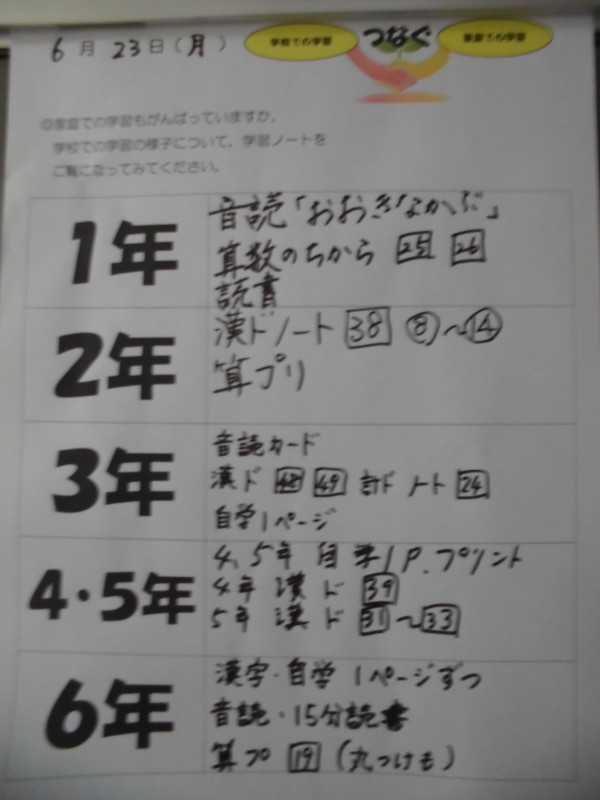 6月23日(月)
学校での学習
つなぐ
家庭での学習
◎家庭での学習もがんばっていますか。
学校での学習の様子について、学習ノートを
ご覧になってみてください。
1年
音読「おおきなかぶ」
算数のちから 25 26
読書
2年
漢ドノート 38 ⑧〜⑭
算プリ
3年
音読カード
漢ド 48 49 計ド ノート 24
自学1ページ
4・5年
4、5年 自学1P、プリント
4年 漢ド 39
5年 漢ド 31〜33
6年
漢字・自学 1ページずつ
音読・15分読書
算プ 19 (丸つけも)